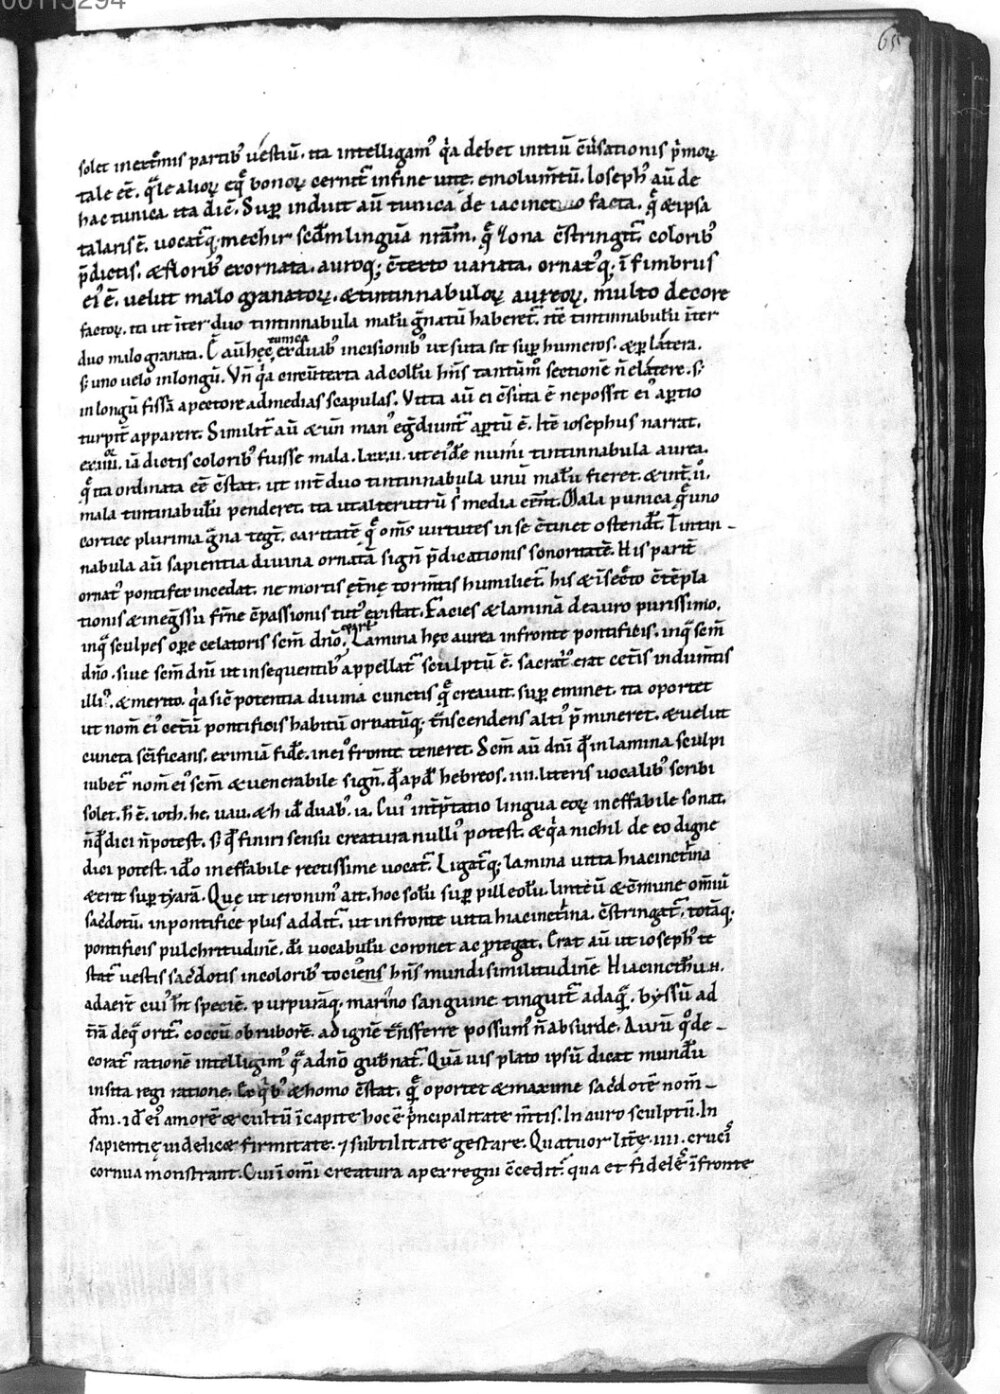 00115294
65
solet in extͤmis partib᾽ uestiū. ita intelligam᾽ q̓a debet initiū ꝯ̄uͥsationis p̓moꝝ
tale eē. q̄le alioꝝ eq̄ bonoꝝ cernit̄ in fine uite. emolum̄tū. Ioseph᾽ aū de
hac tunica ita dic̄. Suꝑ induit aū tunicā de iacinctino facta. q̄ & ipsa
talaris ē. uocat̄q; mechir scd̄m linguā nr̄am. q̄ zona ꝯ̄stringit̄. colorib᾽
p̄dictis. & florib᾽ exornata. auroq; ꝯ̄texto uariata. ornat᾽q; ī fimbriis
ei᾽ ē. uelut malo granatoꝝ. & tintinnabuloꝝ aureoꝝ. multo decore
factoꝝ. ita ut īter duo tintinnabula malū g̃natū haberet̄. itē tintinnabulū īter
duo malo granata. ē aū hęc tunica ex duab᾽ incisionib᾽ ut suta sit suꝑ humeros. & ꝑ latera.
s; uno uelo in longū. Vn̄ q̓a circū texta ad collū hn̄s tantūm᾽ sectionē n̄ e latere. s;
in longū fissā a pectore ad medias scapulas. Vitta aū ei ꝯ̄suta ē ne possit ei᾽ aꝑtio
turpit̄ apparere. Similit̄ aū & un̄ man᾽ eg̃diunt̄ aꝑtū ē. Itē iosephus narrat.
ex iiii. iā dictis colorib᾽ fuisse mala. lxxii. ut eiͦdē num̄i tintinnabula aurea.
q̄ ita ordinata eē ꝯ̄stat. ut int̄ duo tintinnabula unū malū fieret. & int̄ .ii.
mala tintinabulū penderet. ita ut alterutrū s̓ media eēnt. Mala punica q̄ uno
cortice plurima g̃na tegit̄. caritatē q̄ oms̄ uirtutes in se ꝯ̄tinet ostendt̄. Tintin-
nabula aū sapientia diuina ornatā sign̄ p̄dicationis sonoritatē. His parit̄
ornat᾽ pontifex incedat. ne mortis ęt̄nę torm̄tis humiliet̄. his & ī secͤto ꝯ̄tēpla
tionis & ineg̃ssu fr̄ne ꝯ̄passionis tut᾽ existat. Facies & laminā de auro purissimo.
in q̓ sculpes oꝑe celatoris sc̄m dn̄o. Lamina hęc aurea in fronte pontificis. in q̓ sc̄m
dn̄o. siue sc̄m dn̄i ut in sequentib᾽ appellat̄ sculptū ē. sacrat᾽ erat cet̄is indum̄tis
illi᾽. & merito. q̓a sic̄ potentia diuina cunctis q̄ creauit. suꝑ eminet. ita oportet
ut nom̄ ei᾽ cet̄ū pontificis habitū ornatūq; tn̄scendens alti᾽ p̄ mineret. & uelut
cuncta sc̄ificans. eximiā fidē. in ei᾽ fronte teneret. Sc̄m aū dn̄i qđ in lamina sculpi
iubet̄ nom̄ ei᾽ sc̄m & uenerabile sign̄. qđ apđ hebreos. iiii. literis uocalib᾽ scribi
solet. h̄ ē. ioth. he. uau. & h idđ duab᾽. ia. Cui᾽ int̄p̄tatio lingua eoꝝ ineffabile sonat.
n̄ qđ dici n̄ potest. s; qđ finiri sensu creatura nulli᾽ potest. & q̓a nichil de eo digne
dici potest. id̄o ineffabile rectissime uocat̄. Ligat̄q; lamina uitta hiacinctina
& erit suꝑ tyarā. Quę ut ieronim᾽ ait. hoc solū suꝑ pilleolū. linteū & ꝯ̄mune om̄iū
sac̄dotū. in pontifice plus addit̄. ut in fronte uitta hiacinctina. ꝯ̄stringat̄. totāq;
pontificis pulchritudinē. đi uocabulū coronet ac ꝓtegat. Erat aū ut ioseph᾽ te
stat̄ uestis sac̄dotis in colorib᾽ tociens hn̄s mundi similitudinē Hiacinctinū
ad aerē cui᾽ ht̄ speciē. purpurāq; marino sanguine tinguit̄ ad aq̄. byssū ad
t̄rā de q̓ orit̄. coccū ob ruborē. ad ignē t̃nsferre possum᾽ n̄ absurde. Aurū q̊ de-
corat̄ rationē intelligim᾽ q̄ ad n̄o gub̄nat̄. Quāuis plato ipsū dicat mundū
insita regi ratione. Ex q̓b᾽ & homo ꝯ̄stat. q̄ oportet & maxime sac̄dotē nom̄-
dn̄i. id̄ ei᾽ amorē & cultū ī capite hoc ē p̓ncipalitate m̄tis. In auro sculptū. In
sapientię uidelicet firmitate. ⁊ subtilitate gestare. Quatuor litę̄ iiii. cruci᾽
cornua monstrant. Cui ī om̄i creatura apex regni ꝯ̄cedit̄. qua et fidelē ī fronte